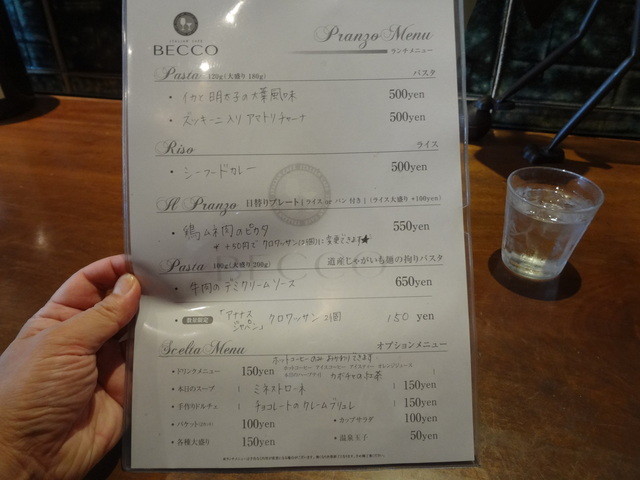 BECCO
Pranzo Menu
ランチメニュー
Pasta 120g(大盛り180g) パスタ
・イカと明太子の大葉風味 500yen
・ズッキーニ入りアマトリチャーナ 500yen
Riso ライス
・シーフードカレー 500yen
Il Pranzo 日替りプレート(ライス or パン 付き)(ライス大盛り +100yen)
・鶏ムネ肉のピカタ 550yen
+50円でクロワッサン(2個)に変更できます★
Pasta 100g(大盛り200g) 道産じゃがいも麺の拘りパスタ
・牛肉のデミクリームソース 650yen
・数量限定 「アナナスジャパン」クロワッサン 2個 150 yen
Scelta Menu オプションメニュー
ホットコーヒーのみ おかわりできます
・ドリンクメニュー 150yen
カボチャの紅茶
・本日のスープ ミネストローネ 150yen
・手作りドルチェ チョコレートのクレームブリュレ 150yen
・バケット 100yen ・カップサラダ 100yen
・各種大盛り 150yen ・温泉玉子 50yen